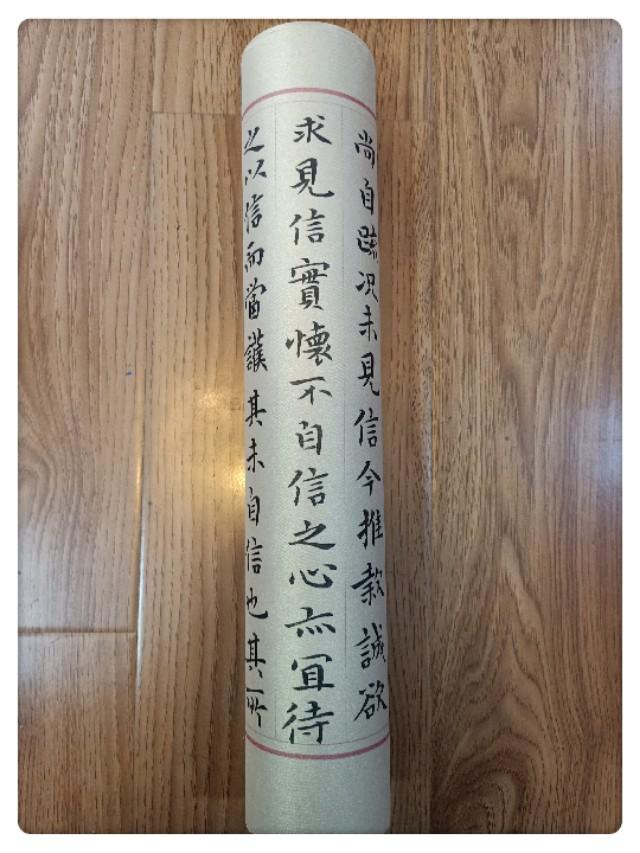 尚自疏况未見信今推款誠欲
求見信實懷不自信之心亦宜待
之以信而當護其未自信也其所